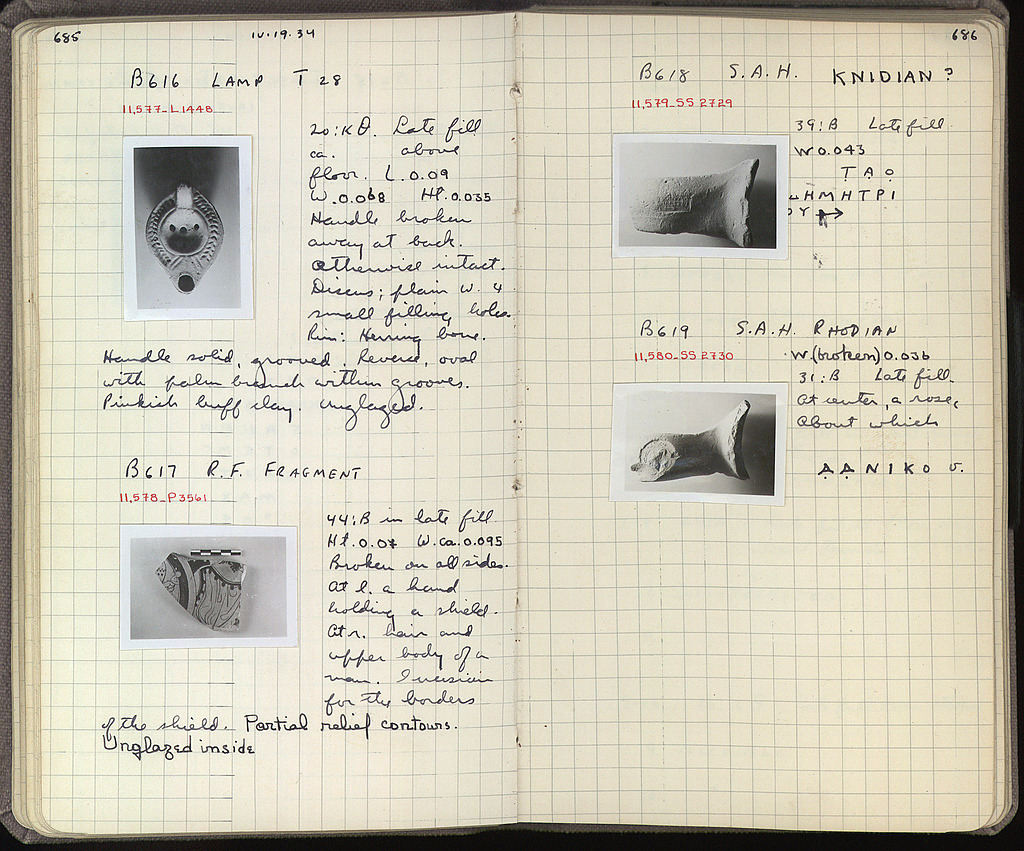 685
IV.19.34
B616 LAMP T 28
11,577_L1448
20:ΚΘ. Late fill
ca. above
floor. L.0.09
W.0.068 Ht.0.035
Handle broken
away at back.
Otherwise intact.
Discus; plain w. 4
small filling holes.
Rim: Herring bone.
Handle solid, grooved. Reverse, oval
with palm branch within grooves.
Pinkish buff clay. Unglazed.
B617 R.F. FRAGMENT
11,578_P3561
44:B in late fill.
Ht.0.07 W.ca.0.095
Broken on all sides.
At l. a hand
holding a shield.
At r. hair and
upper body of a
man. Incision
for the borders
of the shield. Partial relief contours.
Unglazed inside
686
B618 S.A.H. KNIDIAN?
11,579_SS 2729
39:B Late fill
W 0.043
ΤΑΟ
ΗΜΗΤΡΙ
ΟΥ →
B619 S.A.H. RHODIAN
11,580_SS 2730
W.(broken) 0.036
31:B Late fill.
At center, a rose,
about which
Α̣Α̣ΝΙΚΟ υ.